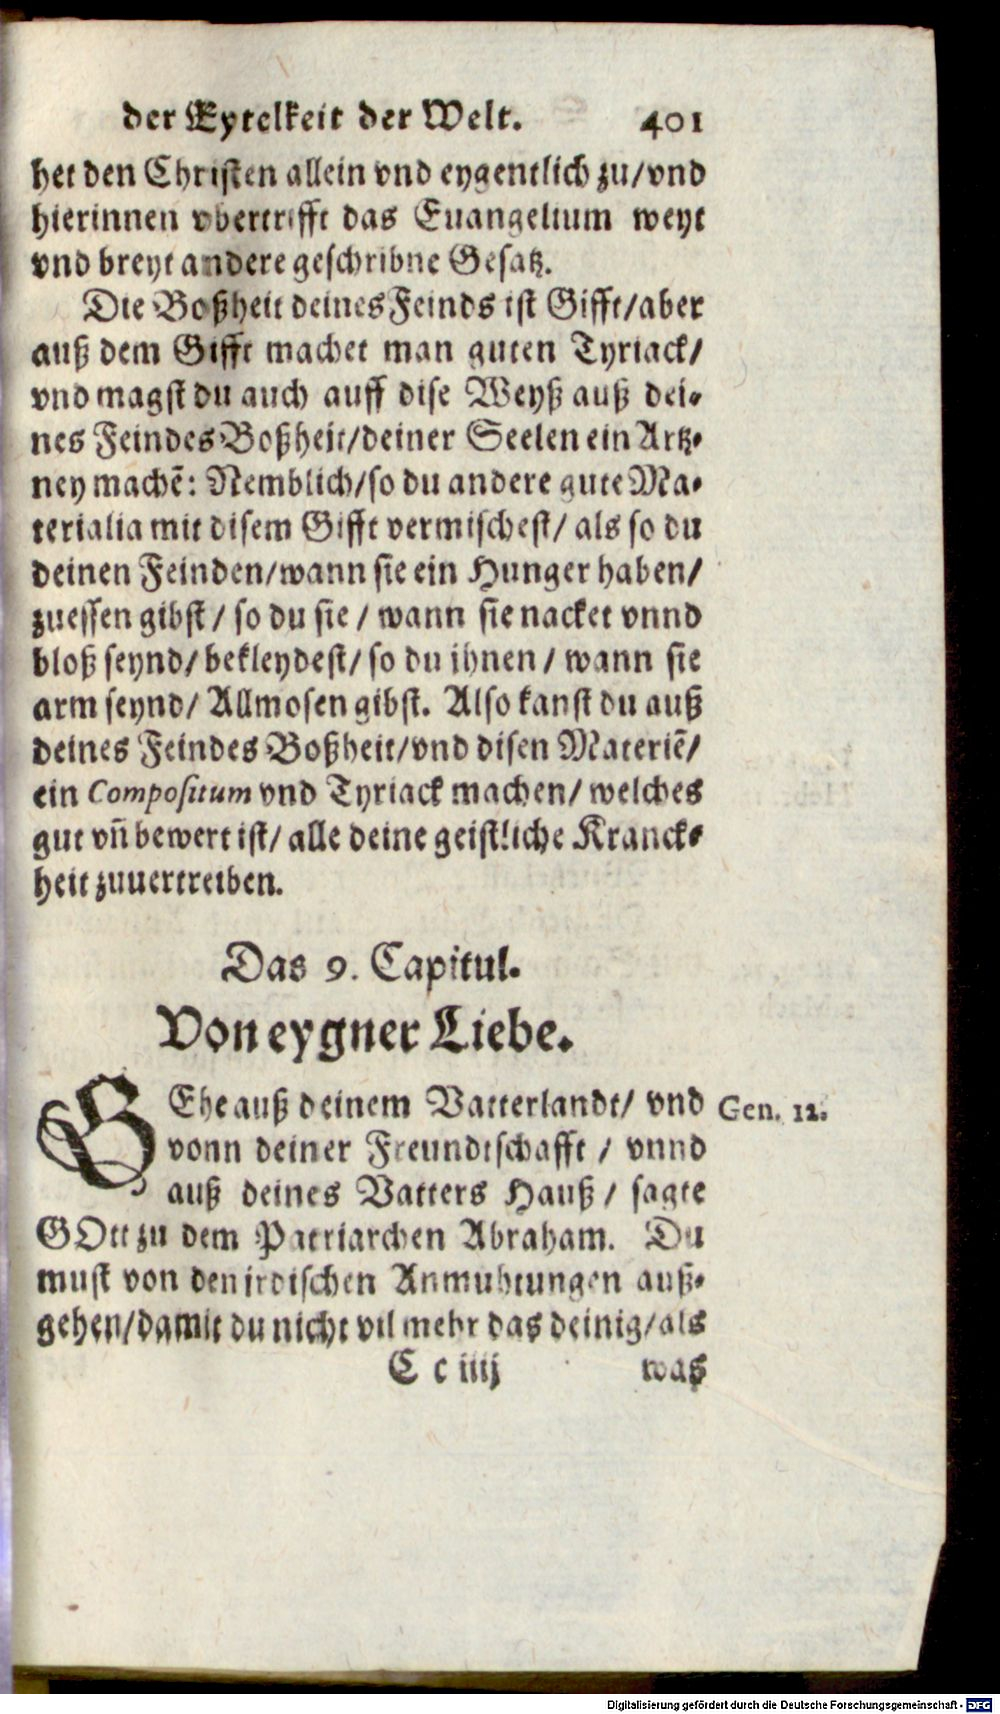 der Eytelkeit der Welt. 401
het den Christen allein vnd eygentlich zu/vnd
hierinnen vbertrifft das Euangelium weyt
vnd breyt andere geschribne Gesatz.
Die Boßheit deines Feinds ist Gifft/aber
auß dem Gifft machet man guten Tyriack/
vnd magst du auch auff dise Weyß auß dei-
nes Feindes Boßheit/deiner Seelen ein Artz-
ney machē: Nemblich/so du andere gute Ma-
terialia mit disem Gifft vermischest/ als so du
deinen Feinden/wann sie ein Hunger haben/
zuessen gibst / so du sie / wann sie nacket vnnd
bloß seynd/ bekleydest/ so du ihnen / wann sie
arm seynd/ Allmosen gibst. Also kanst du auß
deines Feindes Boßheit/vnd disen Materiē/
ein Compositum vnd Tyriack machen/ welches
gut vñ bewert ist/ alle deine geistliche Kranck-
heit zuuertreiben.
Das 9. Capitul.
Von eygner Liebe.
GEhe auß deinem Vatterlandt/ vnd Gen. 12.
vonn deiner Freundtschafft / vnnd
auß deines Vatters Hauß / sagte
GOtt zu dem Patriarchen Abraham. Du
must von den irdischen Anmuhtungen auß-
gehen/damit du nicht vil mehr das deinig/als
C c iiij was
Digitalisierung gefördert durch die Deutsche Forschungsgemeinschaft - DFG